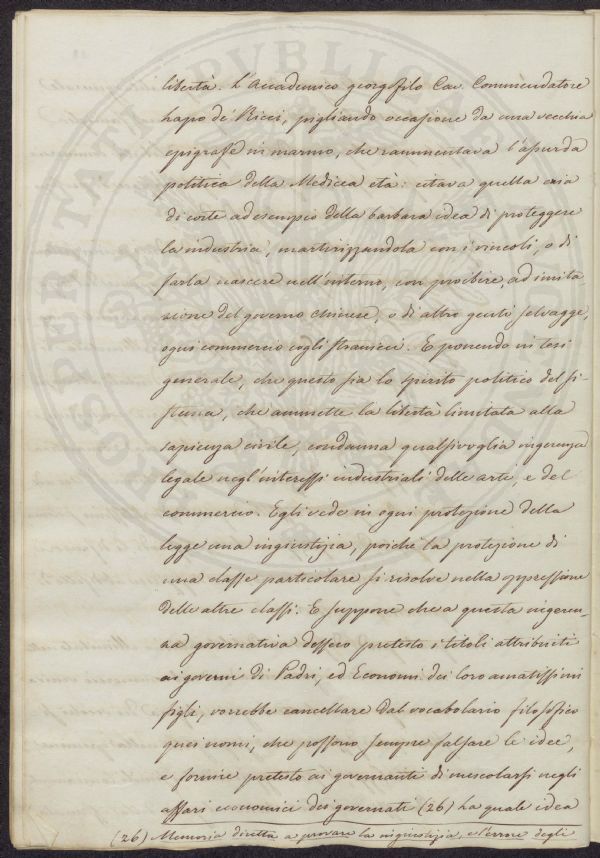 libertà. L'Accademico georgofilo Cav. Commendatore
Lapo de' Ricci, pigliando occasione da una vecchia
epigraffe in marmo, che rammentava l'assurda
politica della Medicea età: citava quella casa
di corte ad esempio della barbara idea di proteggere
la industria, martirizzandola con i vincoli, o di
farla nascere nell'interno, con proibire, ad imita
zione del governo chinese, o di altre genti selvagge,
ogni commercio cogli stranieri. E ponendo in tesi
generale, che questo sia lo spirito politico del si
stema, che ammette la libertà limitata alla
sapienza civile, condanna qualsivoglia ingerenza
legale negl'interessi industriali delle arti, e del
commercio. Egli vede in ogni protezione della
legge una ingiustizia, poichè la protezione di
una classe particolare si risolve nella oppressione
delle altre classi. E suppone che a questa ingeren-
za governativa dessero pretesto i titoli attribuiti
ai governi di Padri, ed Economi dei loro amatissimi
figli, vorrebbe cancellare dal vocabolario filosofico
quei nomi, che possono sempre falsare le idee,
e fornire pretesto ai governanti di mescolarsi negli
affari economici dei governati (26) La quale idea
(26) Memoria diretta a provare la ingiustizia, e l'errore degli
PROSPERITATI PVBLICAE